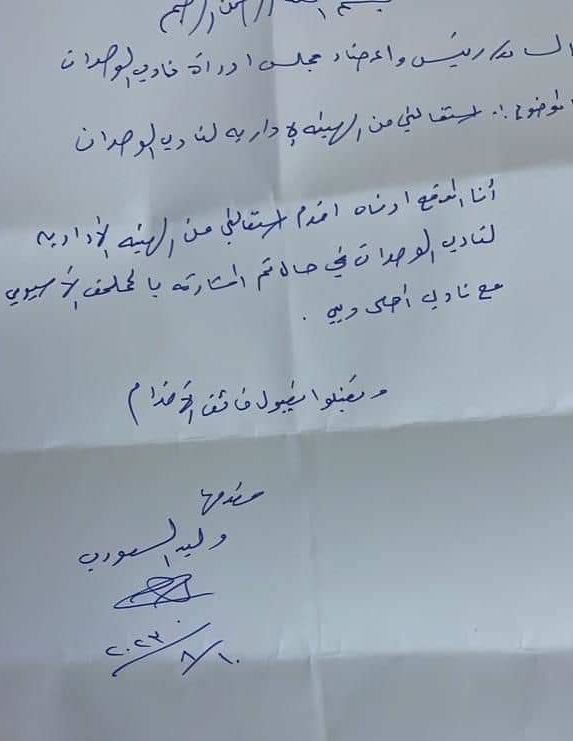 بسم الله الرحمن الرحيم
السادة رئيس واعضاء مجلس ادراة نادي الوحدات
الموضوع :. استقالتي من الهيئه الإداريه لنادي الوحدات
أنا الموقع ادناه اقدم استقالتي من الهيئه الأداريه
لنادي الوحدات في حال تم المشاركه بالملحق الآسيوي
مع نادي
وتفضلوا بقبول فائق الأحترام
مقدمها
وليد السعودي
٢٠٢٣/٨/١٠